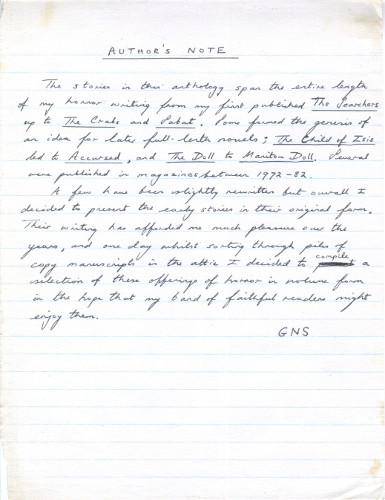 AUTHOR'S NOTE
The stories in this anthology span the entire length
of my horror writing from my first published The Searchers
up to The Crabs and Sabat. Some formed the genesis of
an idea for later full-length novels; The Child of Isis
led to Accursed, and The Doll to Manitou Doll. Several
were published in magazines between 1972-82.
A few have been slightly rewritten but overall I
decided to present the early stories in their original form.
This writing has afforded me much pleasure over the
years, and one day whilst sorting through piles of
copy manuscripts in the attic I decided to compile a
selection of these offerings of horror in volume form
in the hope that my band of faithful readers might
enjoy them.
GNS